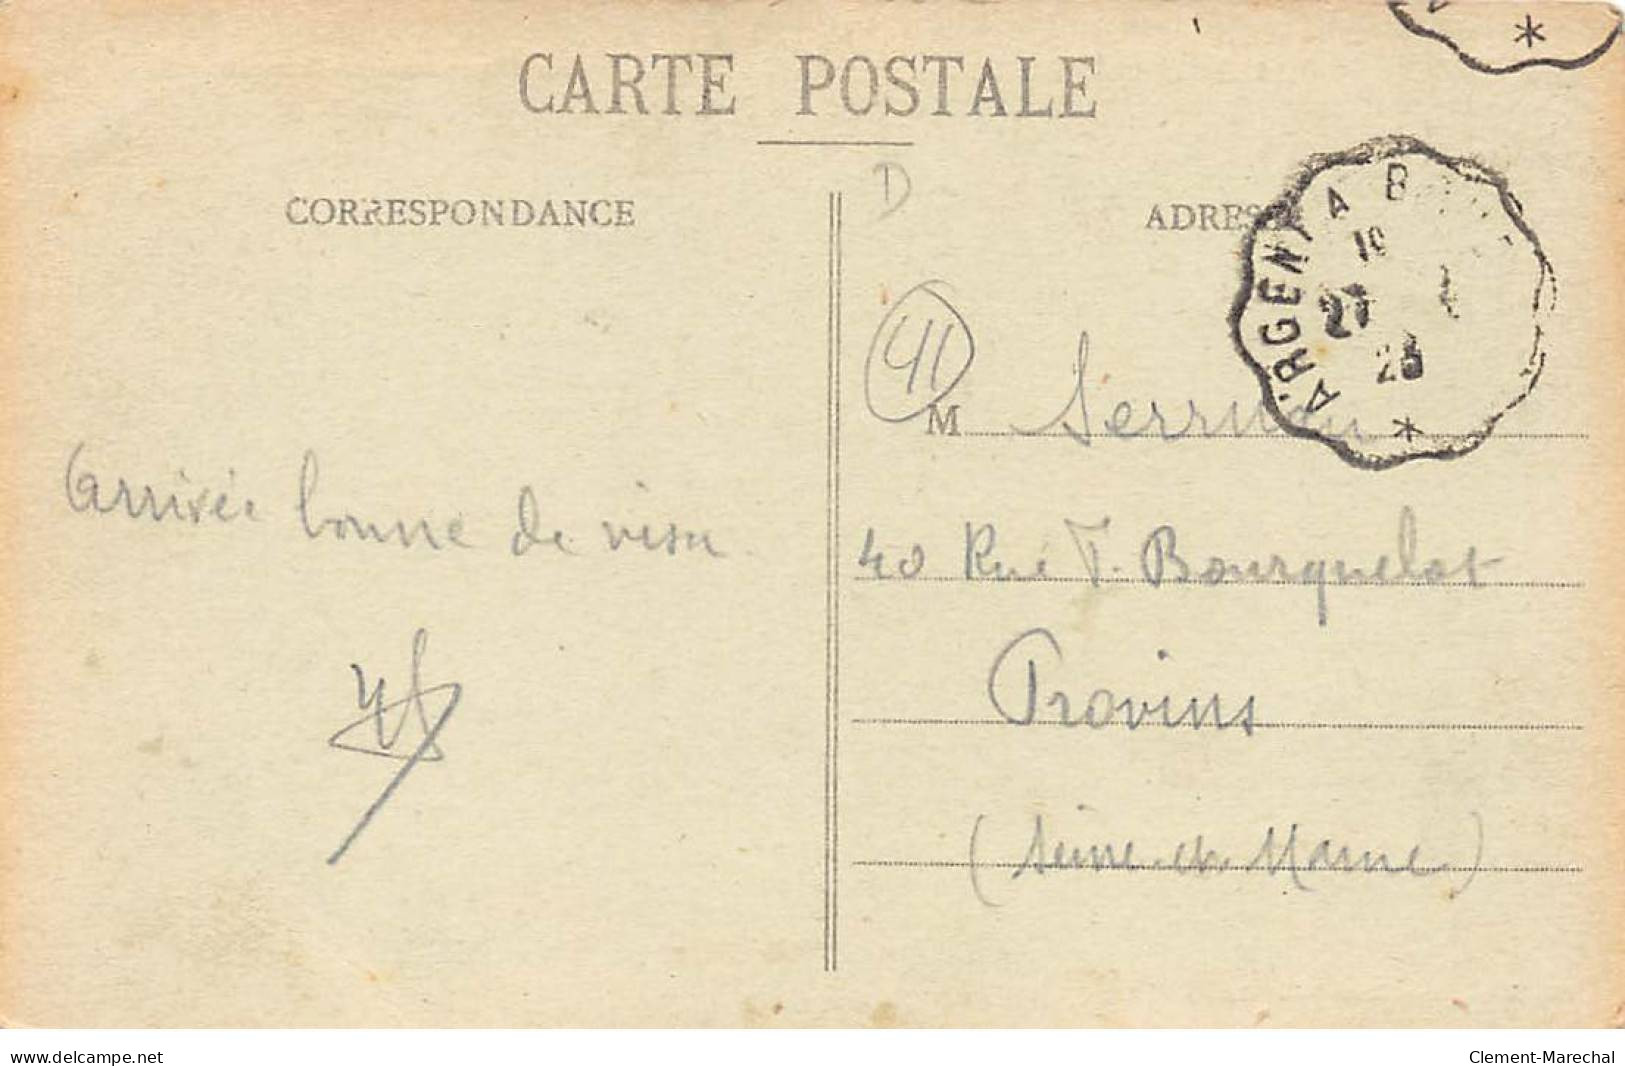 CARTE POSTALE
CORRESPONDANCE
D
ADRES
ARGENT A B
10
27
23
*
*
41
M
Arrivée bonne de visu
40 Rue F. Bourquelot
Provins
(Seine-et-Marne)
www.delcampe.net
Clement-Marechal